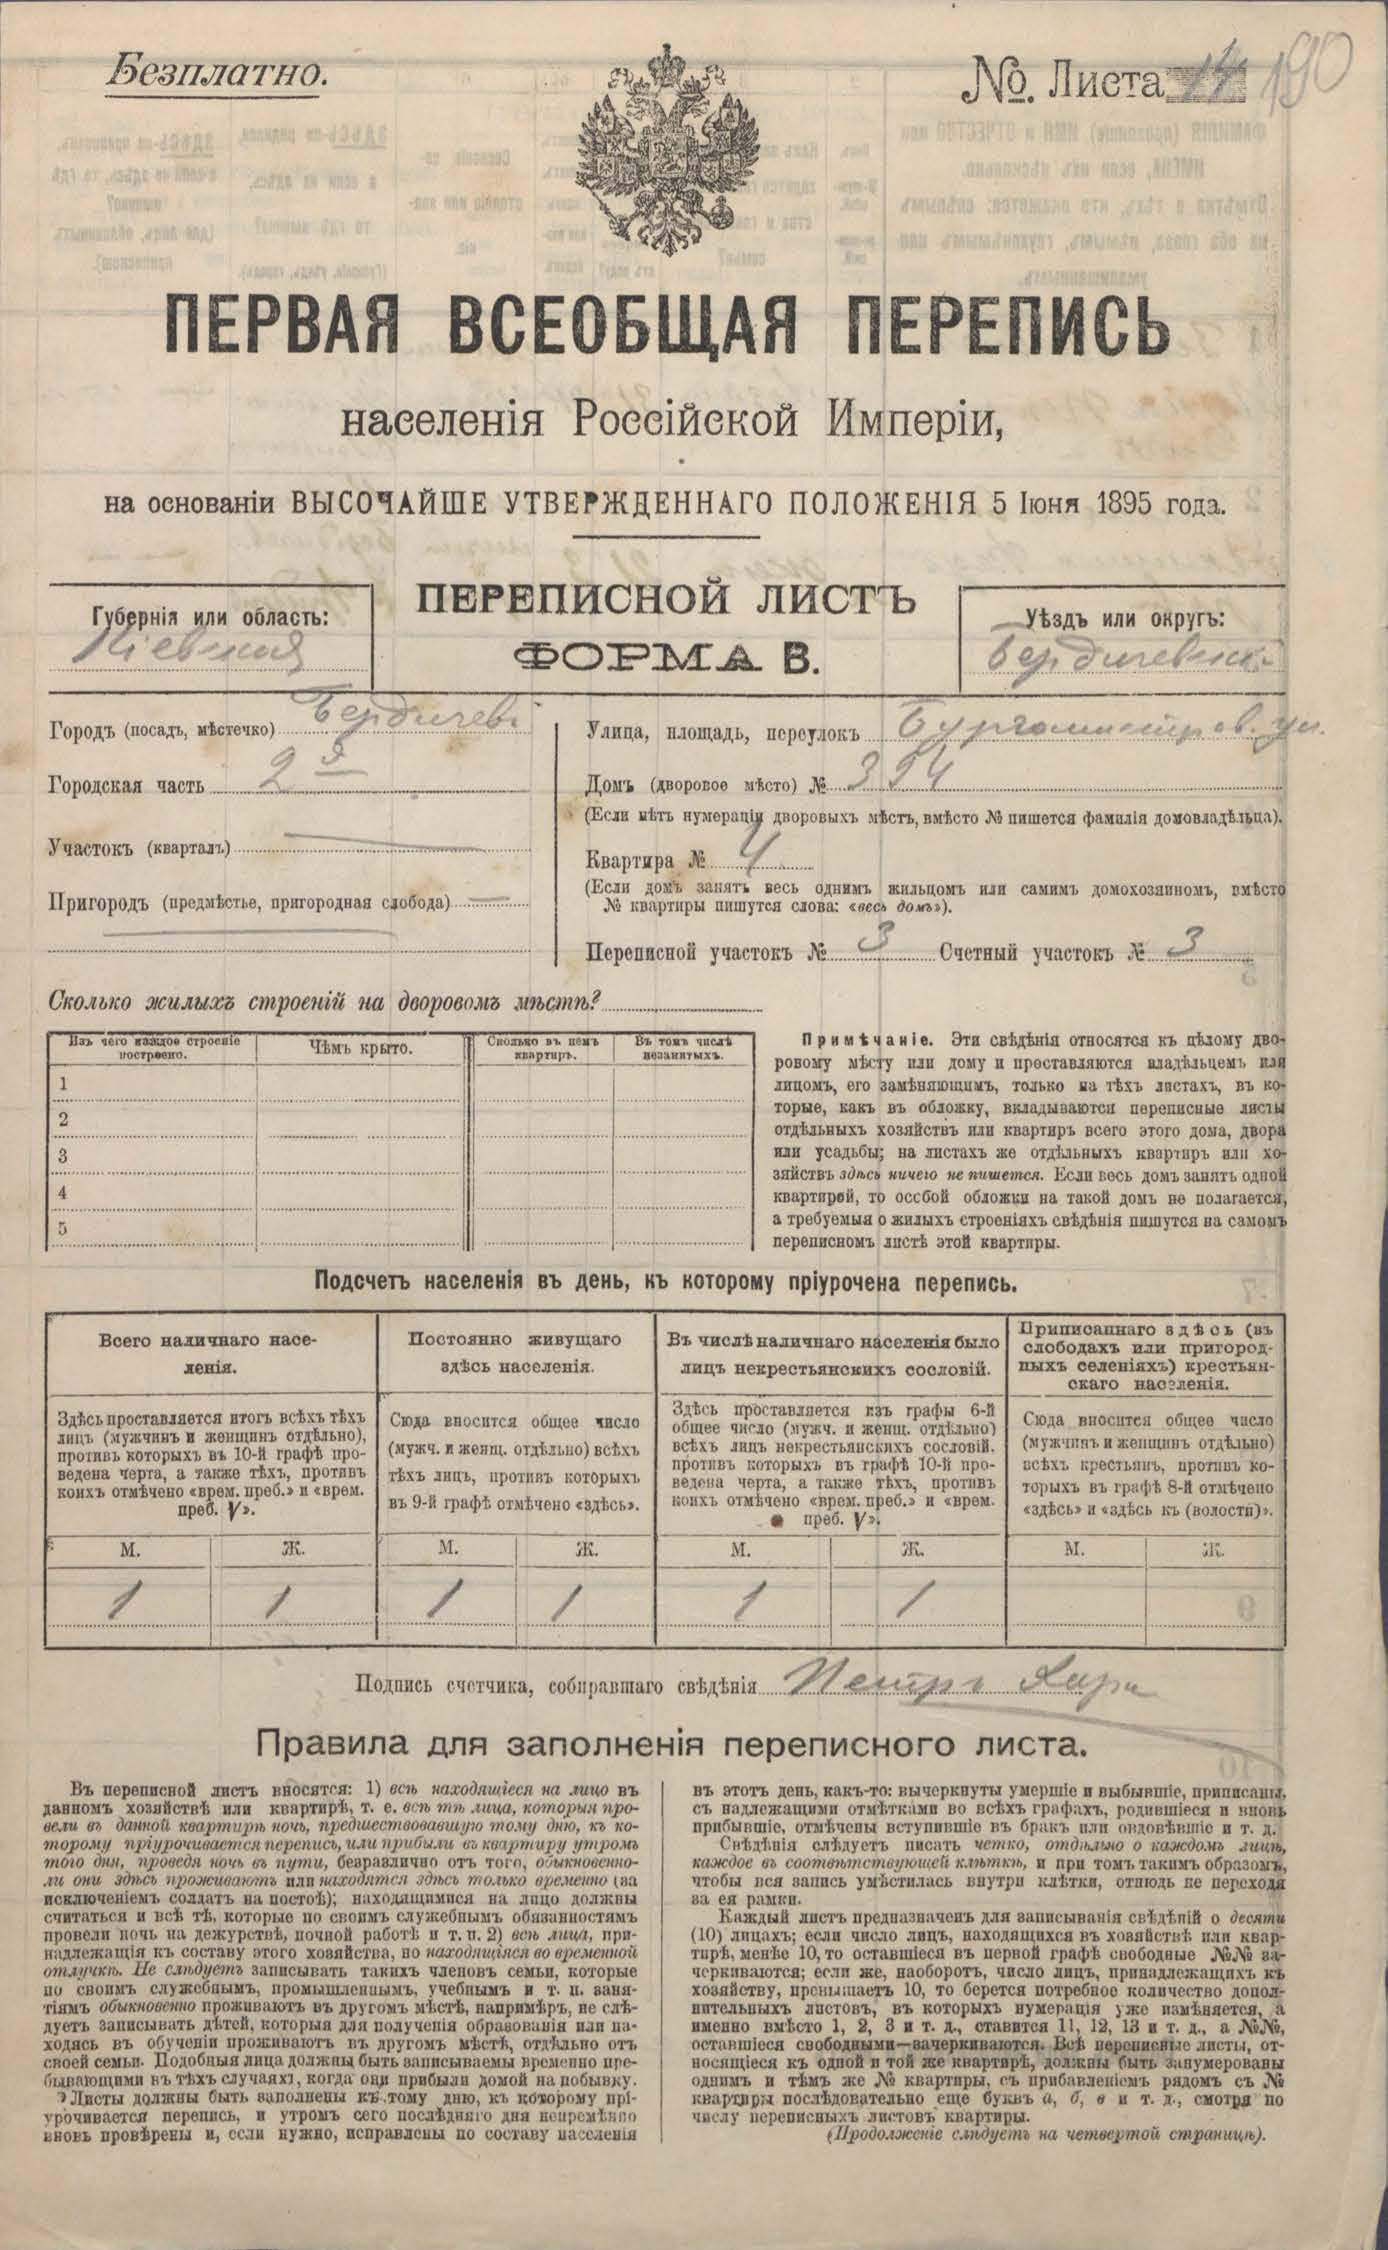 Безплатно.
№. Листа 14 190
ПЕРВАЯ ВСЕОБЩАЯ ПЕРЕПИСЬ
населенія Россійской Имперіи,
на основаніи ВЫСОЧАЙШЕ УТВЕРЖДЕННАГО ПОЛОЖЕНІЯ 5 Іюня 1895 года.
ПЕРЕПИСНОЙ ЛИСТЪ
ФОРМА В.
Губернія или область:
Кіевская
Уѣздъ или округъ:
Бердичевскій
Городъ (посадъ, мѣстечко) Бердичевъ
Городская часть 2я
Участокъ (кварталъ)
Пригородъ (предмѣстье, пригородная слобода)
Улица, площадь, переулокъ Бургомистров. ул.
Домъ (дворовое мѣсто) № 394
(Если нѣтъ нумераціи дворовыхъ мѣстъ, вмѣсто № пишется фамилія домовладѣльца).
Квартира № 4
(Если домъ занятъ весь однимъ жильцомъ или самимъ домохозяиномъ, вмѣсто
№ квартиры пишутся слова: «весь домъ»).
Переписной участокъ № 3 Счетный участокъ № 3
Сколько жилыхъ строеній на дворовомъ мѣстѣ?
Изъ чего каждое строеніе
построено.
Чѣмъ крыто.
Сколько въ немъ
квартиръ.
Въ томъ числѣ
незанятыхъ.
1
2
3
4
5
Примѣчаніе. Эти свѣдѣнія относятся къ цѣлому дво-
ровому мѣсту или дому и проставляются владѣльцемъ или
лицомъ, его замѣняющимъ, только на тѣхъ листахъ, въ ко-
торые, какъ въ обложку, вкладываются переписные листы
отдѣльныхъ хозяйствъ или квартиръ всего этого дома, двора
или усадьбы; на листахъ же отдѣльныхъ квартиръ или хо-
зяйствъ здѣсь ничего не пишется. Если весь домъ занятъ одной
квартирой, то особой обложки на такой домъ не полагается,
а требуемыя о жилыхъ строеніяхъ свѣдѣнія пишутся на самомъ
переписномъ листѣ этой квартиры.
Подсчетъ населенія въ день, къ которому пріурочена перепись.
Всего наличнаго насе-
ленія.
Постоянно живущаго
здѣсь населенія.
Въ числѣ наличнаго населенія было
лицъ некрестьянскихъ сословій.
Приписаннаго здѣсь (въ
слободахъ или пригород-
ныхъ селеніяхъ) крестьян-
скаго населенія.
Здѣсь проставляется итогъ всѣхъ тѣхъ
лицъ (мужчинъ и женщинъ отдѣльно),
противъ которыхъ въ 10-й графѣ про-
ведена черта, а также тѣхъ, противъ
коихъ отмѣчено «врем. преб.» и «врем.
преб. V».
Сюда вносится общее число
(мужч. и женщ. отдѣльно) всѣхъ
тѣхъ лицъ, противъ которыхъ
въ 9-й графѣ отмѣчено «здѣсь».
Здѣсь проставляется изъ графы 6-й
общее число (мужч. и женщ. отдѣльно)
всѣхъ лицъ некрестьянскихъ сословій.
противъ которыхъ въ графѣ 10-й про-
ведена черта, а также тѣхъ, противъ
коихъ отмѣчено «врем. преб.» и «врем.
преб. V».
Сюда вносится общее число
(мужчинъ и женщинъ отдѣльно)
всѣхъ крестьян, противъ ко-
торыхъ въ графѣ 8-й отмѣчено
«здѣсь» и «здѣсь къ (волости)».
М. Ж. М. Ж. М. Ж. М. Ж.
1 1 1 1 1 1
Подпись счетчика, собиравшаго свѣдѣнія Петръ
Правила для заполненія переписного листа.
Въ переписной листъ вносятся: 1) всѣ находящіеся на лицо въ
данномъ хозяйствѣ или квартирѣ, т. е. всѣ тѣ лица, которыя про-
вели въ данной квартирѣ ночь, предшествовавшую тому дню, къ ко-
торому пріурочивается перепись, или прибыли въ квартиру утромъ
того дня, проведя ночь въ пути, безразлично отъ того, обыкновенно-
ли они здѣсь проживаютъ или находятся здѣсь только временно (за
исключеніемъ солдатъ на постоѣ); находящимися на лицо должны
считаться и всѣ тѣ, которые по своимъ служебнымъ обязанностямъ
провели ночь на дежурствѣ, ночной работѣ и т. п. 2) всѣ лица, при-
надлежащія къ составу этого хозяйства, но находящіяся во временной
отлучкѣ. Не слѣдуетъ записывать такихъ членовъ семьи, которые
по своимъ служебнымъ, промышленнымъ, учебнымъ и т. п. заня-
тіямъ обыкновенно проживаютъ въ другомъ мѣстѣ, напримѣръ, не слѣ-
дуетъ записывать дѣтей, которыя для полученія образованія или на-
ходясь въ обученіи проживаютъ въ другомъ мѣстѣ, отдѣльно отъ
своей семьи. Подобныя лица должны быть записываемы временно пре-
бывающими въ тѣхъ случаяхъ, когда они прибыли домой на побывку.
Листы должны быть заполнены къ тому дню, къ которому прі-
урочивается перепись, и утромъ сего послѣдняго дня непремѣнно
вновь провѣрены и, если нужно, исправлены по составу населенія
въ этотъ день, какъ-то: вычеркнуты умершіе и выбывшіе, приписаны,
съ надлежащими отмѣтками во всѣхъ графахъ, родившіеся и вновь
прибывшіе, отмѣчены вступившіе въ бракъ или овдовѣвшіе и т. д.
Свѣдѣнія слѣдуетъ писать четко, отдѣльно о каждомъ лицѣ,
каждое въ соотвѣтствующей клѣткѣ, и при томъ такимъ образомъ,
чтобы вся запись умѣстилась внутри клѣтки, отнюдь не переходя
за ея рамки.
Каждый листъ предназначенъ для записыванія свѣдѣній о десяти
(10) лицахъ; если число лицъ, находящихся въ хозяйствѣ или квар-
тирѣ, менѣе 10, то оставшіеся въ первой графѣ свободные №№ за-
черкиваются; если же, наоборотъ, число лицъ, принадлежащихъ къ
хозяйству, превышаетъ 10, то берется потребное количество допол-
нительныхъ листовъ, въ которыхъ нумерація уже измѣняется, а
именно вмѣсто 1, 2, 3 и т. д., ставится 11, 12, 13 и т. д., а №№,
оставшіеся свободными—зачеркиваются. Всѣ переписные листы, от-
носящіеся къ одной и той же квартирѣ, должны быть занумерованы
однимъ и тѣмъ же № квартиры, съ прибавленіемъ рядомъ съ №
квартиры послѣдовательно еще буквъ а, б, в и т. д., смотря по
числу переписныхъ листовъ квартиры.
(Продолженіе слѣдуетъ на четвертой страницѣ).